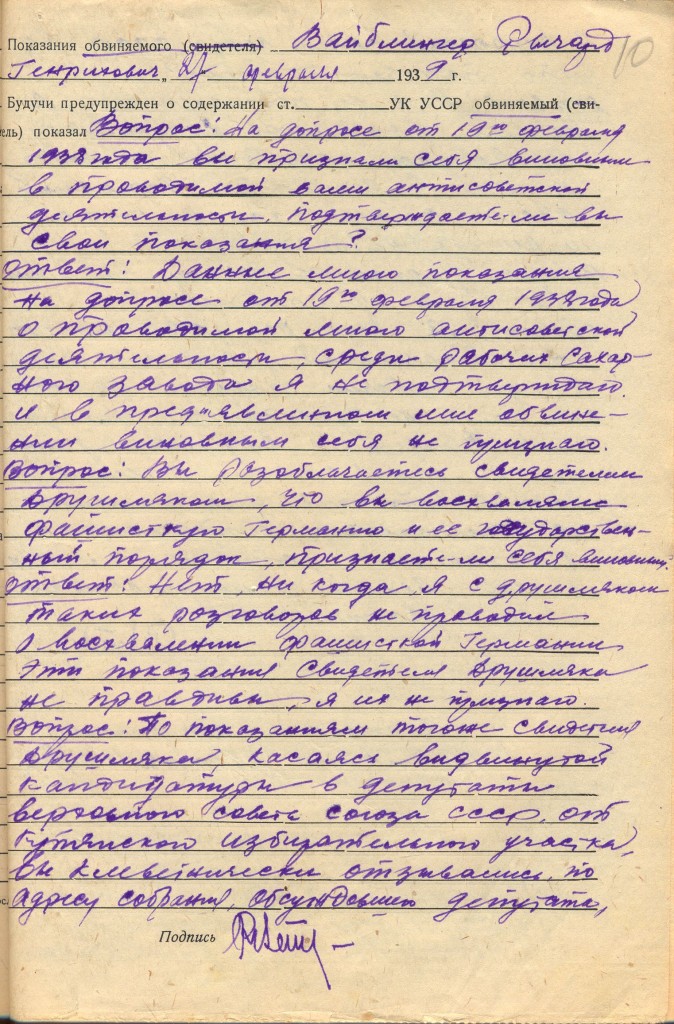 10
Показания обвиняемого (свидетеля) Вайблингер Рычард
Генрихович „27 февраля 1939 г.
Будучи предупрежден о содержании ст. УК УССР обвиняемый (сви-
тель) показал Вопрос: На допросе от 19го февраля
1938 года вы признали себя виновным
в проводимой вами антисоветской
деятельности, подтверждаете-ли вы
свои показания?
Ответ: Данные мною показания
на допросе от 19го февраля 1938 года
о проводимой мною антисоветской
деятельности, среди рабочих сахар-
ного завода я не подтверждаю
и в пред'явленном мне обвине-
нии виновным себя не признаю.
Вопрос: Вы разоблачаетесь свидетелем
Друшляком, что вы восхваляли
фашисткую Германию и ее государствен-
ный порядок, признаете-ли себя виновным.
Ответ: Нет, ни когда я с Друшляком
таких розговоров не проводил
о восхвалении фашисткой Германии
эти показания свидетеля Друшляка
не правдивы, я их не признаю.
Вопрос: По показаниям тогоже свидетеля
Друшляка, касаясь выдвинутой
кандидатуры в депутаты
верховного совета союза СССР, от
избирательного участка,
вы клеветнически отзывались, по
адресу собрания, обсуждавшего депутата,
Подпись